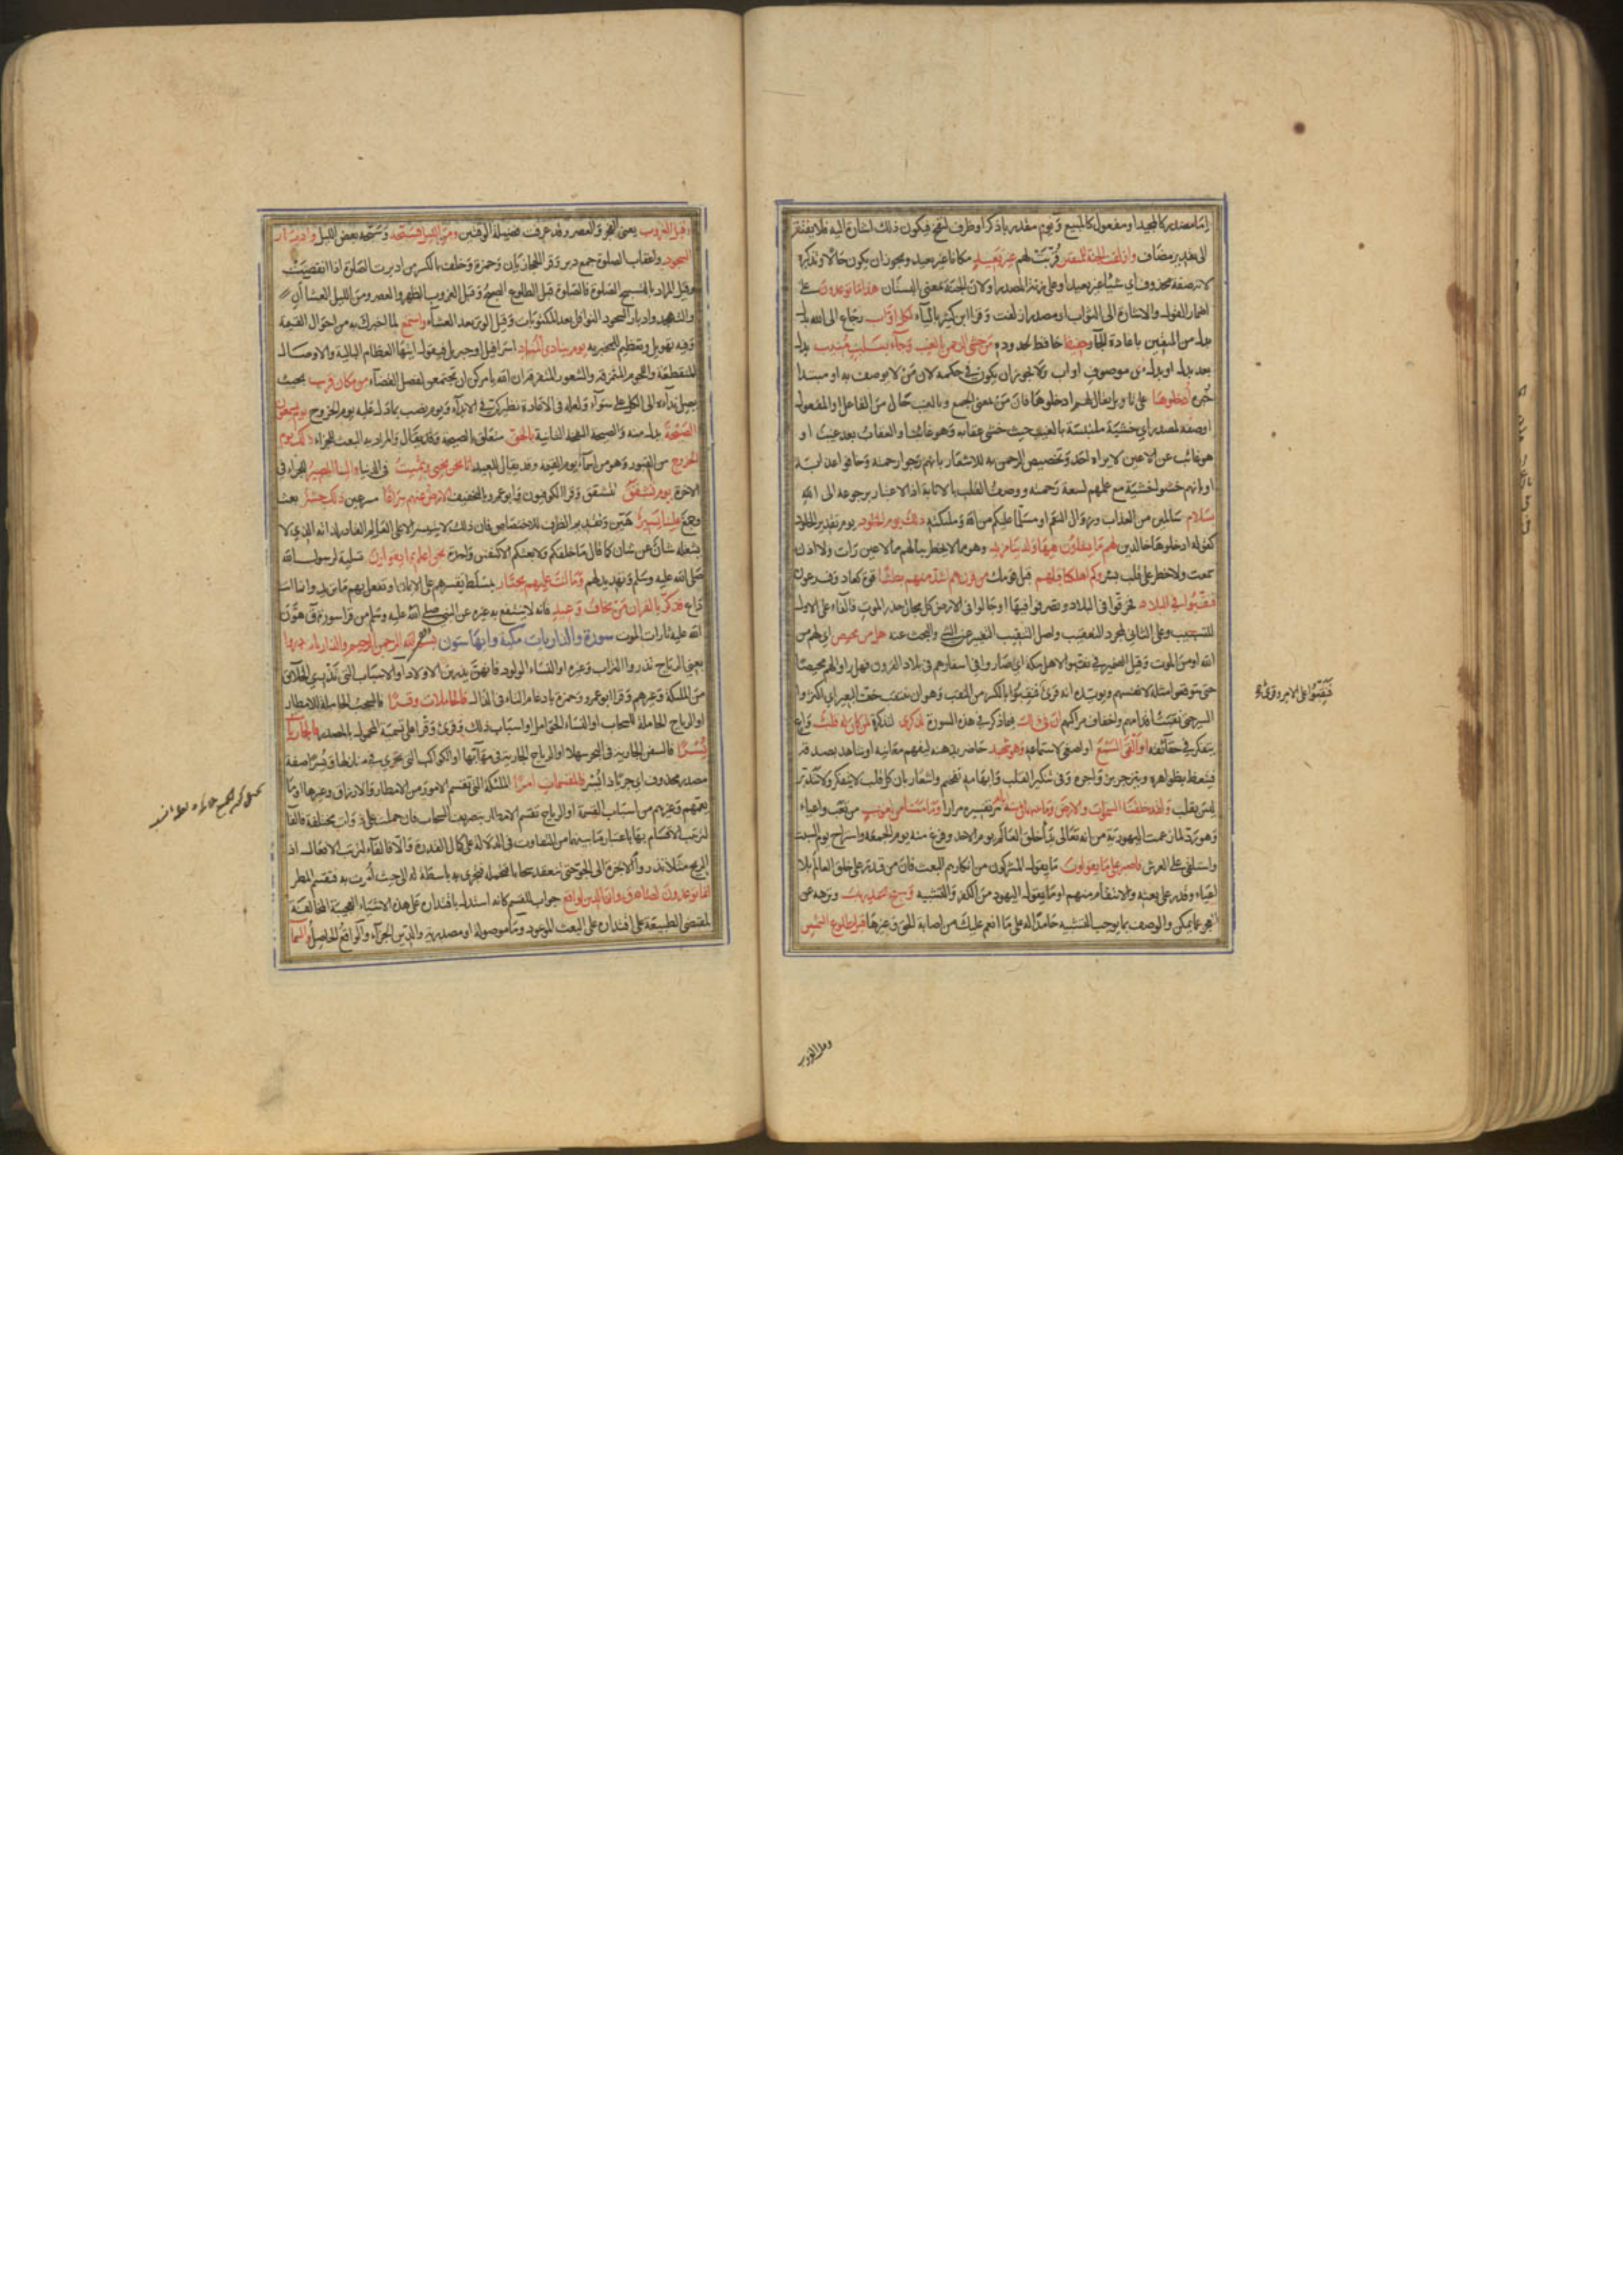 امّا مصدر كالمجيد او مفعول كالمبيع ويوم مقدر باذكر او ظرف لنفخ فيكون ذلك اشارة اليه فلا يفتقر
الى تقدير مضاف وازلفت الجنة للمتقين قُرّبت لهم غير بعيد مكانا غير بعيد ويجوز ان يكون حالا وتذكيره
لانه صفة محذوف اي شيئا غير بعيد او على زنة المصدر او لان الجنة بمعنى البستان هذا ما توعدون على
اضمار القول والاشارة الى الثواب او مصدر ازلفت وقرا ابن كثير بالياء لكل اوّاب رجّاع الى الله بدل
بدل من المتقين باعادة الجار حفيظ حافظ لحدوده من خشي الرحمن بالغيب وجاء بقلب منيب بدل
بعد بدل او بدل من موصوف اواب ولا يجوز ان يكون في حكمه لان من لا يوصف به او مبتدا
خبره ادخلوها على تاويل يقال لهم ادخلوها فان من بمعنى الجمع وبالغيب حال من الفاعل او المفعول
او صفة لمصدر اي خشية ملتبسة بالغيب حيث خشي عقابه وهو غائب او العقاب بعد غيب او
هو غائب عن الاعين لا يراه احد وتخصيص الرحمن به للاشعار بانهم رجوا رحمته وخافوا عذابه
او بانهم خشوا خشية مع علمهم لسعة رحمته ووصف القلب بالانابة اذ الاعتبار برجوعه الى الله
بسلام سالمين من العذاب وزوال النعم او مسلما عليكم من الله وملئكته ذلك يوم الخلود يوم تقدير الخلود
كقوله ادخلوها خالدين لهم ما يشاؤن فيها ولدينا مزيد وهو مما لا يخطر ببالهم مما لا عين رات ولا اذن
سمعت ولا خطر على قلب بشر وكم اهلكنا قبلهم قبل قومك من قرن هم اشد منهم بطشا قوة كعاد وفرعون
فنقبوا في البلاد فخرقوا في البلاد وتصرفوا فيها او جالوا في الارض كل مجال حذر الموت فالفاء على الاول
للتسبيب وعلى الثاني لمجرد التعقيب واصل التنقيب التنقير عن الشئ والبحث عنه هل من محيص اي لهم من
الله او من الموت وقيل الضمير في نقبوا لاهل مكة اي ساروا في اسفارهم في بلاد القرون فهل راوا لهم محيصا
حتى يتوقعوا مثله لانفسهم ويويده انه قرئ فنقبوا بالكسر من النقب وهو ان ينتقب خف البعير اي اكثروا
السير حتى نقبت اقدامهم او اخفاف مراكبهم ان في ذلك فيما ذكر في هذه السورة لذكرى لتذكرة لمن كان له قلب واع
يتفكر في حقائقه او القى السمع او اصغى لاستماعه وهو شهيد حاضر بذهنه ليفهم معانيه او شاهد بصدقه
فيتعظ بظواهره وينزجر بزواجره وفي تنكير القلب وابهامه تفخيم واشعار بان كل قلب لا يتفكر ولا يتدبر
ليس بقلب ولقد خلقنا السموات والارض وما بينهما في ستة ايام مر تفسيره مرارا وما مسنا من لغوب من تعب واعياء
وهو رد لما زعمت اليهود من انه تعالى بدا خلق العالم يوم الاحد وفرغ منه يوم الجمعة واستراح يوم السبت
واستلقى على العرش فاصبر على ما يقولون ما يقول المشركون من انكارهم البعث فان من قدر على خلق العالم بلا
اعياء وقدر على بعثهم والانتقام منهم او ما يقول اليهود من الكفر والتشبيه وسبح بحمد ربك ونزهه عن
العجز عما يمكن والوصف بما يوجب التشبيه حامدا له على ما انعم عليك من اصابة الحق وغيرها قبل طلوع الشمس
وقبل الغروب
وقبل الغروب يعني الفجر والعصر وقد عرفت فضيلة الوقتين ومن الليل فسبحه وسبحه بعض الليل وادبار
السجود واعقاب الصلوة جمع دبر وقرا الحجازيان وحمزة وخلف بالكسر من ادبرت الصلوة اذا انقضت
وقيل المراد بالتسبيح الصلوة فالصلوة قبل الطلوع الصبح وقبل الغروب الظهر والعصر ومن الليل العشاآن
والتهجد وادبار السجود النوافل بعد المكتوبات وقيل الوتر بعد العشاء واستمع لما اخبرك به من احوال القيمة
وفيه تهويل وتعظيم للمخبر به يوم ينادي المناد اسرافيل او جبريل فيقول ايتها العظام البالية والاوصال
المنقطعة واللحوم المتمزقة والشعور المتفرقة ان الله يامركن ان تجتمعن لفصل القضاء من مكان قريب بحيث
يصل نداؤه الى الكل على سواء ولعله في الاعادة نظير كن في الابداء ويوم نصب بما دل عليه يوم الخروج يوم يسمعون
الصيحة بدل منه والصيحة النفخة الثانية بالحق متعلق بالصيحة والمراد به البعث للجزاء ذلك يوم
الخروج من القبور وهو من اسماء يوم القيمة وقد يقال للعيد انا نحن نحيي ونميت في الدنيا والينا المصير للجزاء في
الاخرة يوم تشقق تتشقق وقرا الكوفيون وابو عمرو بالتخفيف الارض عنهم سراعا مسرعين ذلك حشر بعث
وجمع علينا يسير هين وتقديم الظرف للاختصاص فان ذلك لا يتيسر الا على العالم القادر لذاته الذي لا
يشغله شان عن شان كما قال ما خلقكم ولا بعثكم الا كنفس واحدة نحن اعلم بما يقولون تسلية لرسول الله
صلى الله عليه وسلم وتهديد لهم وما انت عليهم بجبار بمسلط تقسرهم على الايمان او تفعل بهم ما تريد وانما انت
داع فذكر بالقران من يخاف وعيد فانه لا ينتفع به غيره عن النبي صلى الله عليه وسلم من قرا سورة ق هون
الله عليه تارات الموت سورة والذاريات مكية وايها ستون بسم الله الرحمن الرحيم والذاريات ذروا
يعني الرياح تذروا التراب وغيره او النساء الولود فانهن يذرين الاولاد او الاسباب التي تذري الخلائق
من الملئكة وغيرهم وقرا ابو عمرو وحمزة بادغام التاء في الذال فالحاملات وقرا فالسحب الحاملة للامطار
او الرياح الحاملة للسحاب او النساء الحوامل او اسباب ذلك وقرئ وقرا على تسمية المحمول بالمصدر فالجاريات
يسرا فالسفن الجارية في البحر سهلا او الرياح الجارية في مهابها او الكواكب التي تجري في منازلها ويسرا صفة
مصدر محذوف اي جريا ذا يسر فالمقسمات امرا الملئكة التي تقسم الامور من الامطار والارزاق وغيرها او ما
يعمهم وغيرهم من اسباب القسمة او الرياح تقسم الامطار بتصريف السحاب فان حملت على ذوات مختلفة فالفاء
لترتيب الاقسام بها باعتبار ما بينها من التفاوت في الدلالة على كمال القدرة والا فالفاء لترتيب الافعال اذ
الريح مثلا تذروا الابخرة الى الجو حتى تنعقد سحابا فتحمله فتجري به باسطة له الى حيث امرت به فتقسم المطر
انما توعدون لصادق وان الدين لواقع جواب للقسم كانه استدل باقتداره على هذه الاشياء العجيبة المخالفة
لمقتضى الطبيعة على اقتداره على البعث الموعود وما موصولة او مصدرية والدين الجزاء والواقع الحاصل والسماء